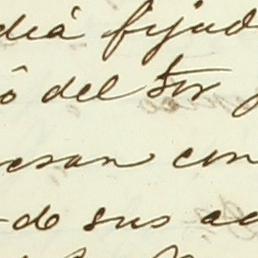 dia fijad
ó del Sor
esan con
de sus ac